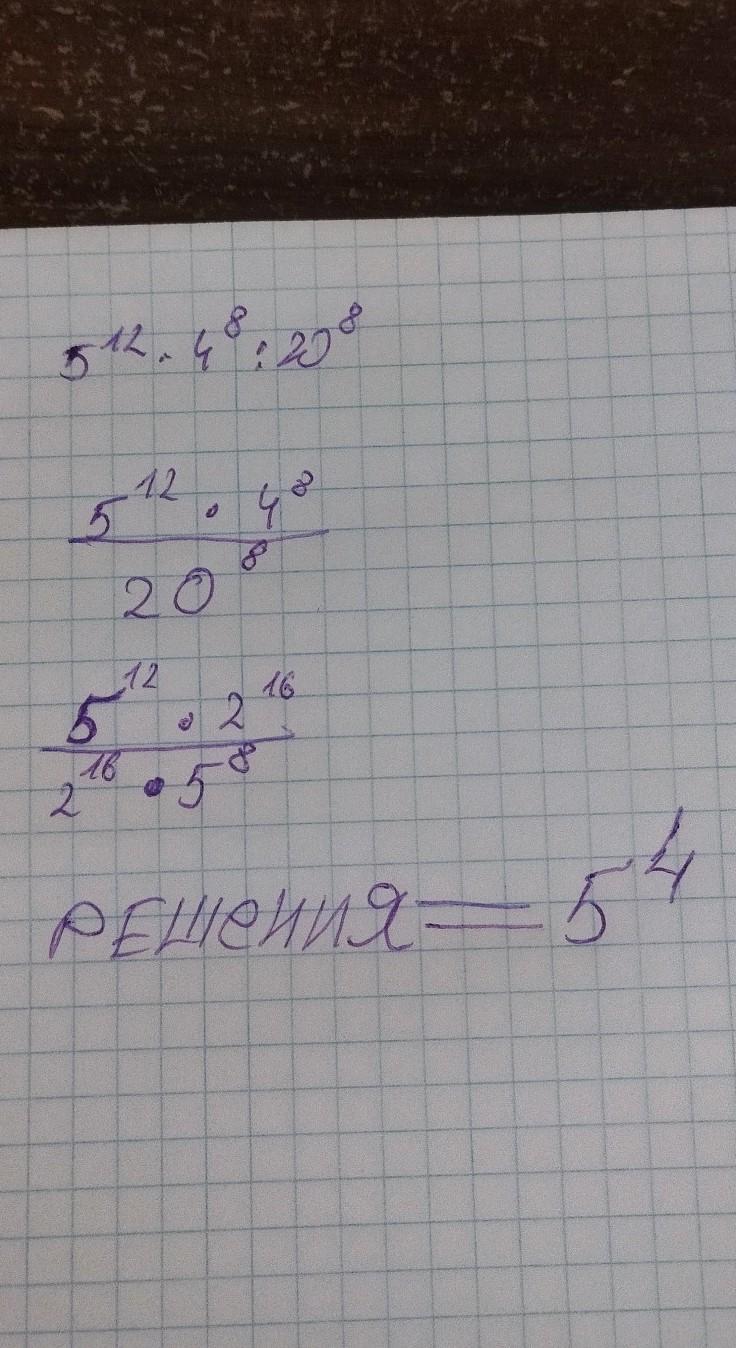 5¹² · 4⁸ : 20⁸
5¹² · 4⁸
20⁸
5¹² · 2¹⁶
2¹⁶ · 5⁸
РЕШеНИЯ = 5⁴